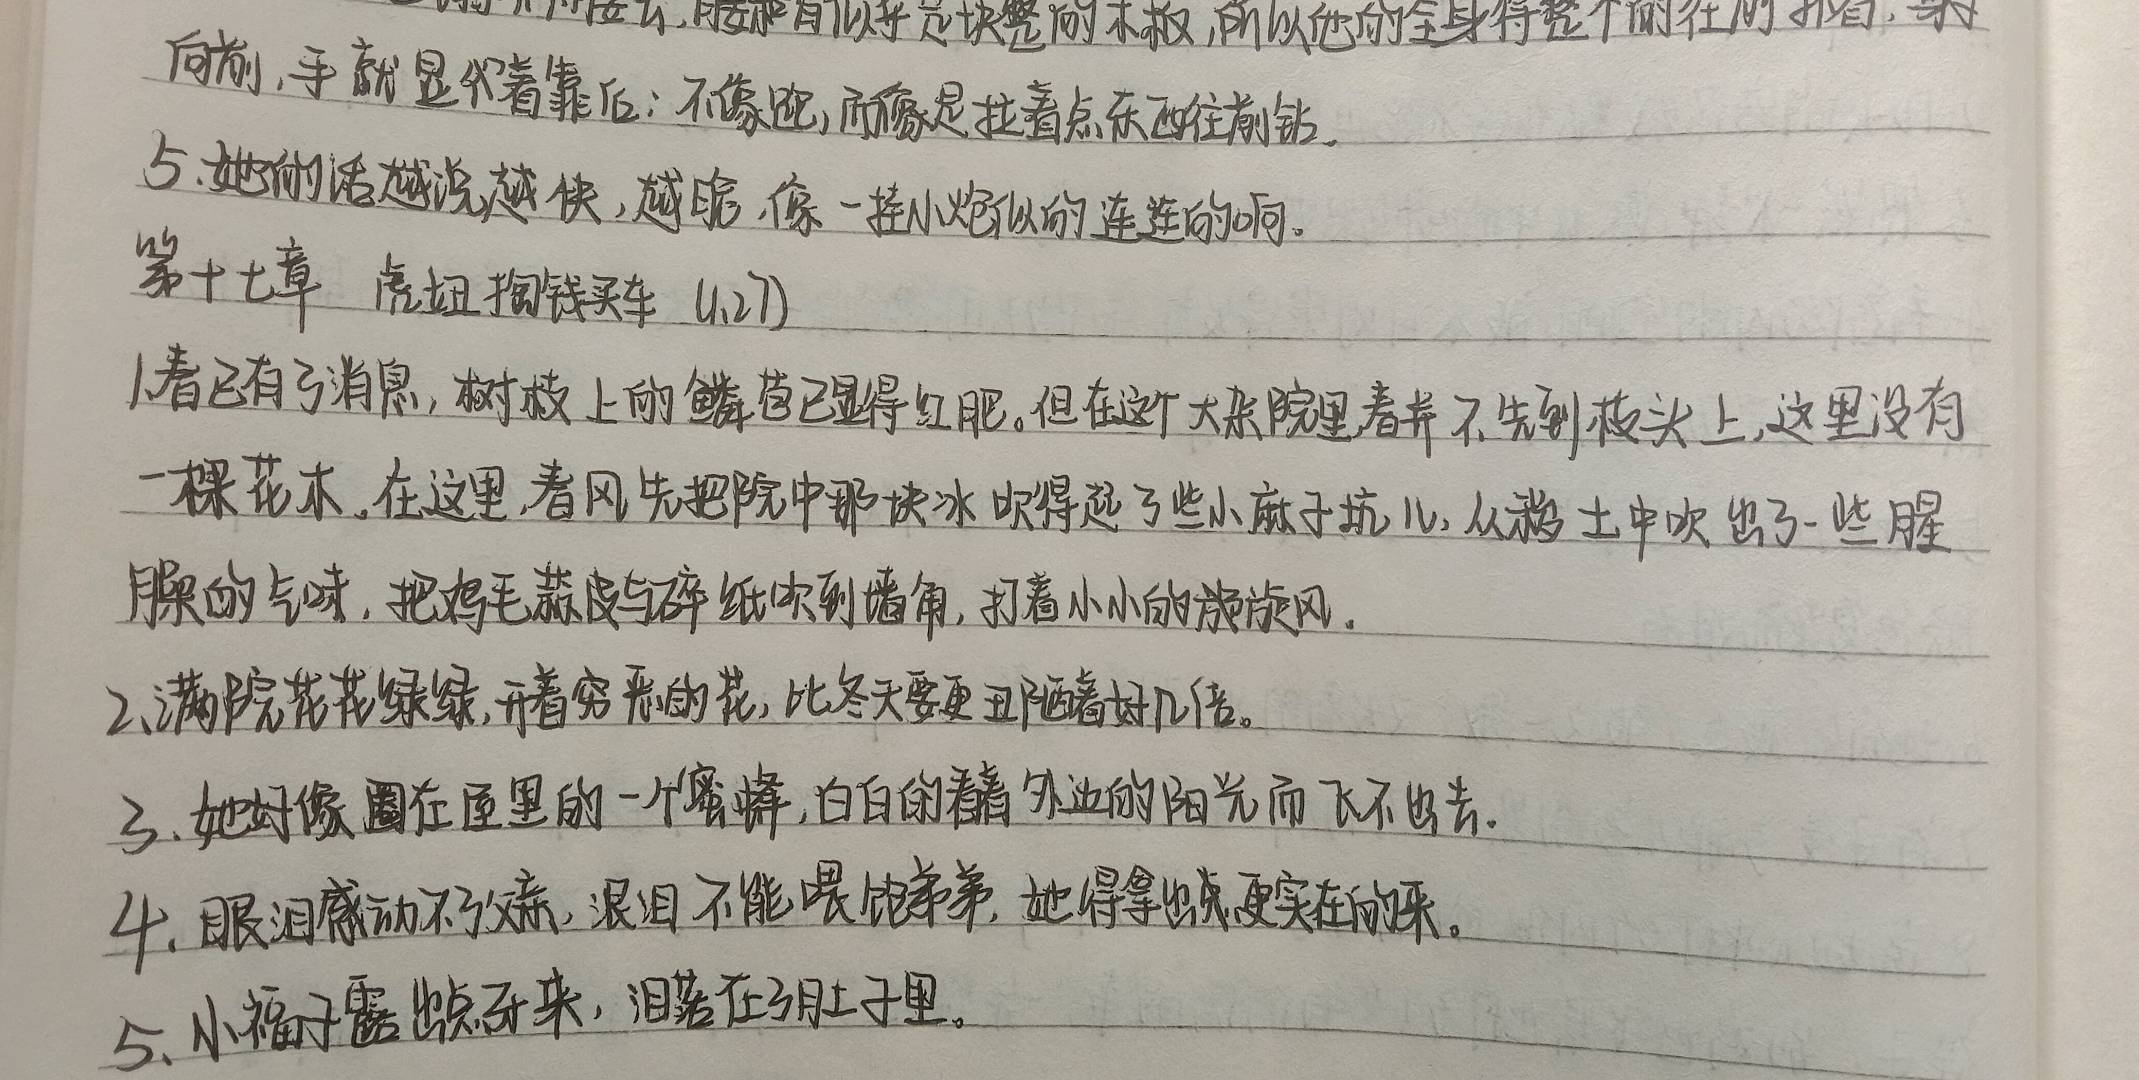 腰和背似乎是块整的木板,所以他的全身得整个的往前扑着,身
向前,手就显得靠后;不像跑,而像是拉着点东西往前钻.
5.她的话越说越快,越脆,像一挂小炮似的连连的响.
第十七章 虎妞掏钱买车 (1.27)
1.春已有了消息,树枝上的鳞苞已显得红肥。但在这个大杂院里,春并不先到枝头上,这里没有
一棵花木。在这里,春风先把院中那块冰吹得起了些小麻子坑儿,从秽土中吹出了一些腥
臊的气味,把鸡毛蒜皮与碎纸吹到墙角,打着小小的旋风.
2、满院花花绿绿,开着穷恶的花,比冬天要更丑陋着好几倍。
3.她好像圈在屋里的一个蜜蜂,白白的看着外边的阳光而飞不出去.
4.眼泪感动不了父亲,眼泪不能喂饱弟弟,她得拿出点更实在的来。
5、小福子露出点牙来,泪落在了肚子里。